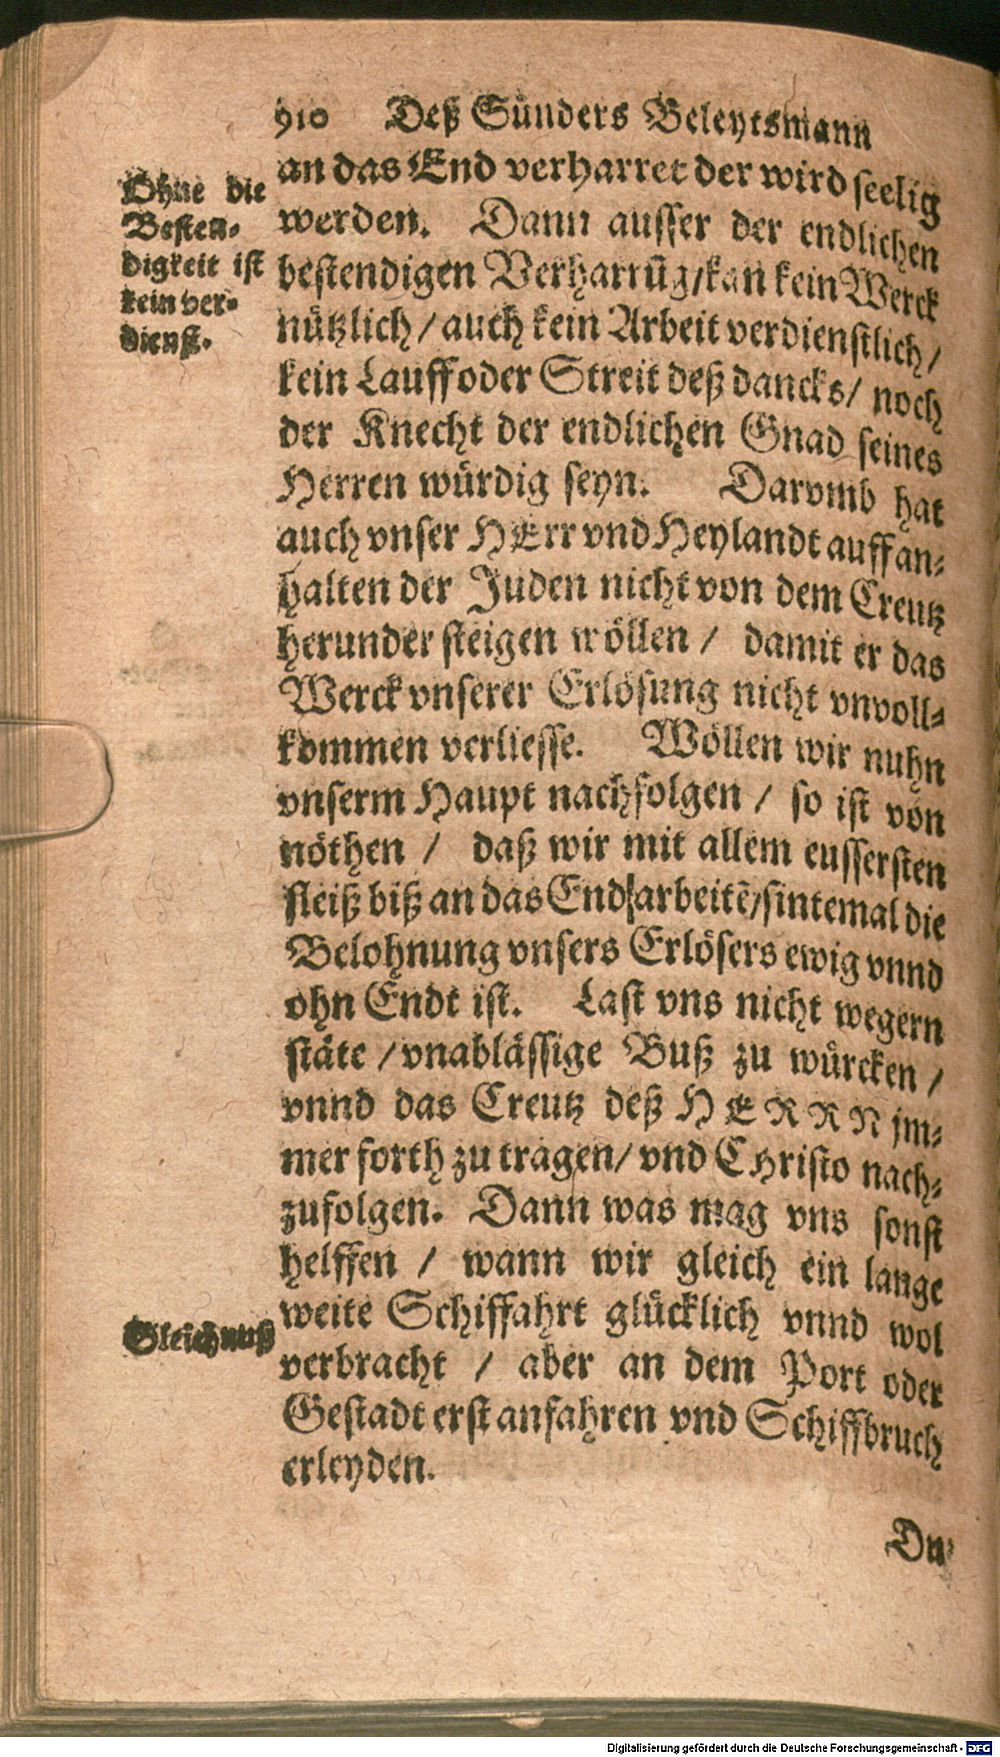 910 Deß Sünders Beleytsmann
Ohne die
Besten-
digkeit ist
kein ver-
dienst.
an das End verharret der wird seelig
werden. Dann ausser der endlichen
bestendigen Verharrũg/kan kein Werck
nützlich/auch kein Arbeit verdienstlich/
kein Lauff oder Streit deß dancks/ noch
der Knecht der endlichen Gnad seines
Herren würdig seyn. Darvmb hat
auch vnser HErr vnd Heylandt auff an-
halten der Juden nicht von dem Creutz
herunder steigen wöllen / damit er das
Werck vnserer Erlösung nicht vnvoll-
kommen verliesse. Wöllen wir nuhn
vnserm Haupt nachfolgen / so ist von
nöthen / daß wir mit allem eussersten
fleiß biß an das End arbeitẽ/sintemal die
Belohnung vnsers Erlösers ewig vnnd
ohn Endt ist. Last vns nicht wegern
stäte / vnablässige Buß zu würcken /
vnnd das Creutz deß HERRN jm-
mer forth zu tragen/ vnd Christo nach-
zufolgen. Dann was mag vns sonst
helffen / wann wir gleich ein lange
weite Schiffahrt glücklich vnnd wol
Gleichnuß
verbracht / aber an dem Port oder
Gestadt erst anfahren vnd Schiffbruch
erleyden.
Du
Digitalisierung gefördert durch die Deutsche Forschungsgemeinschaft - DFG